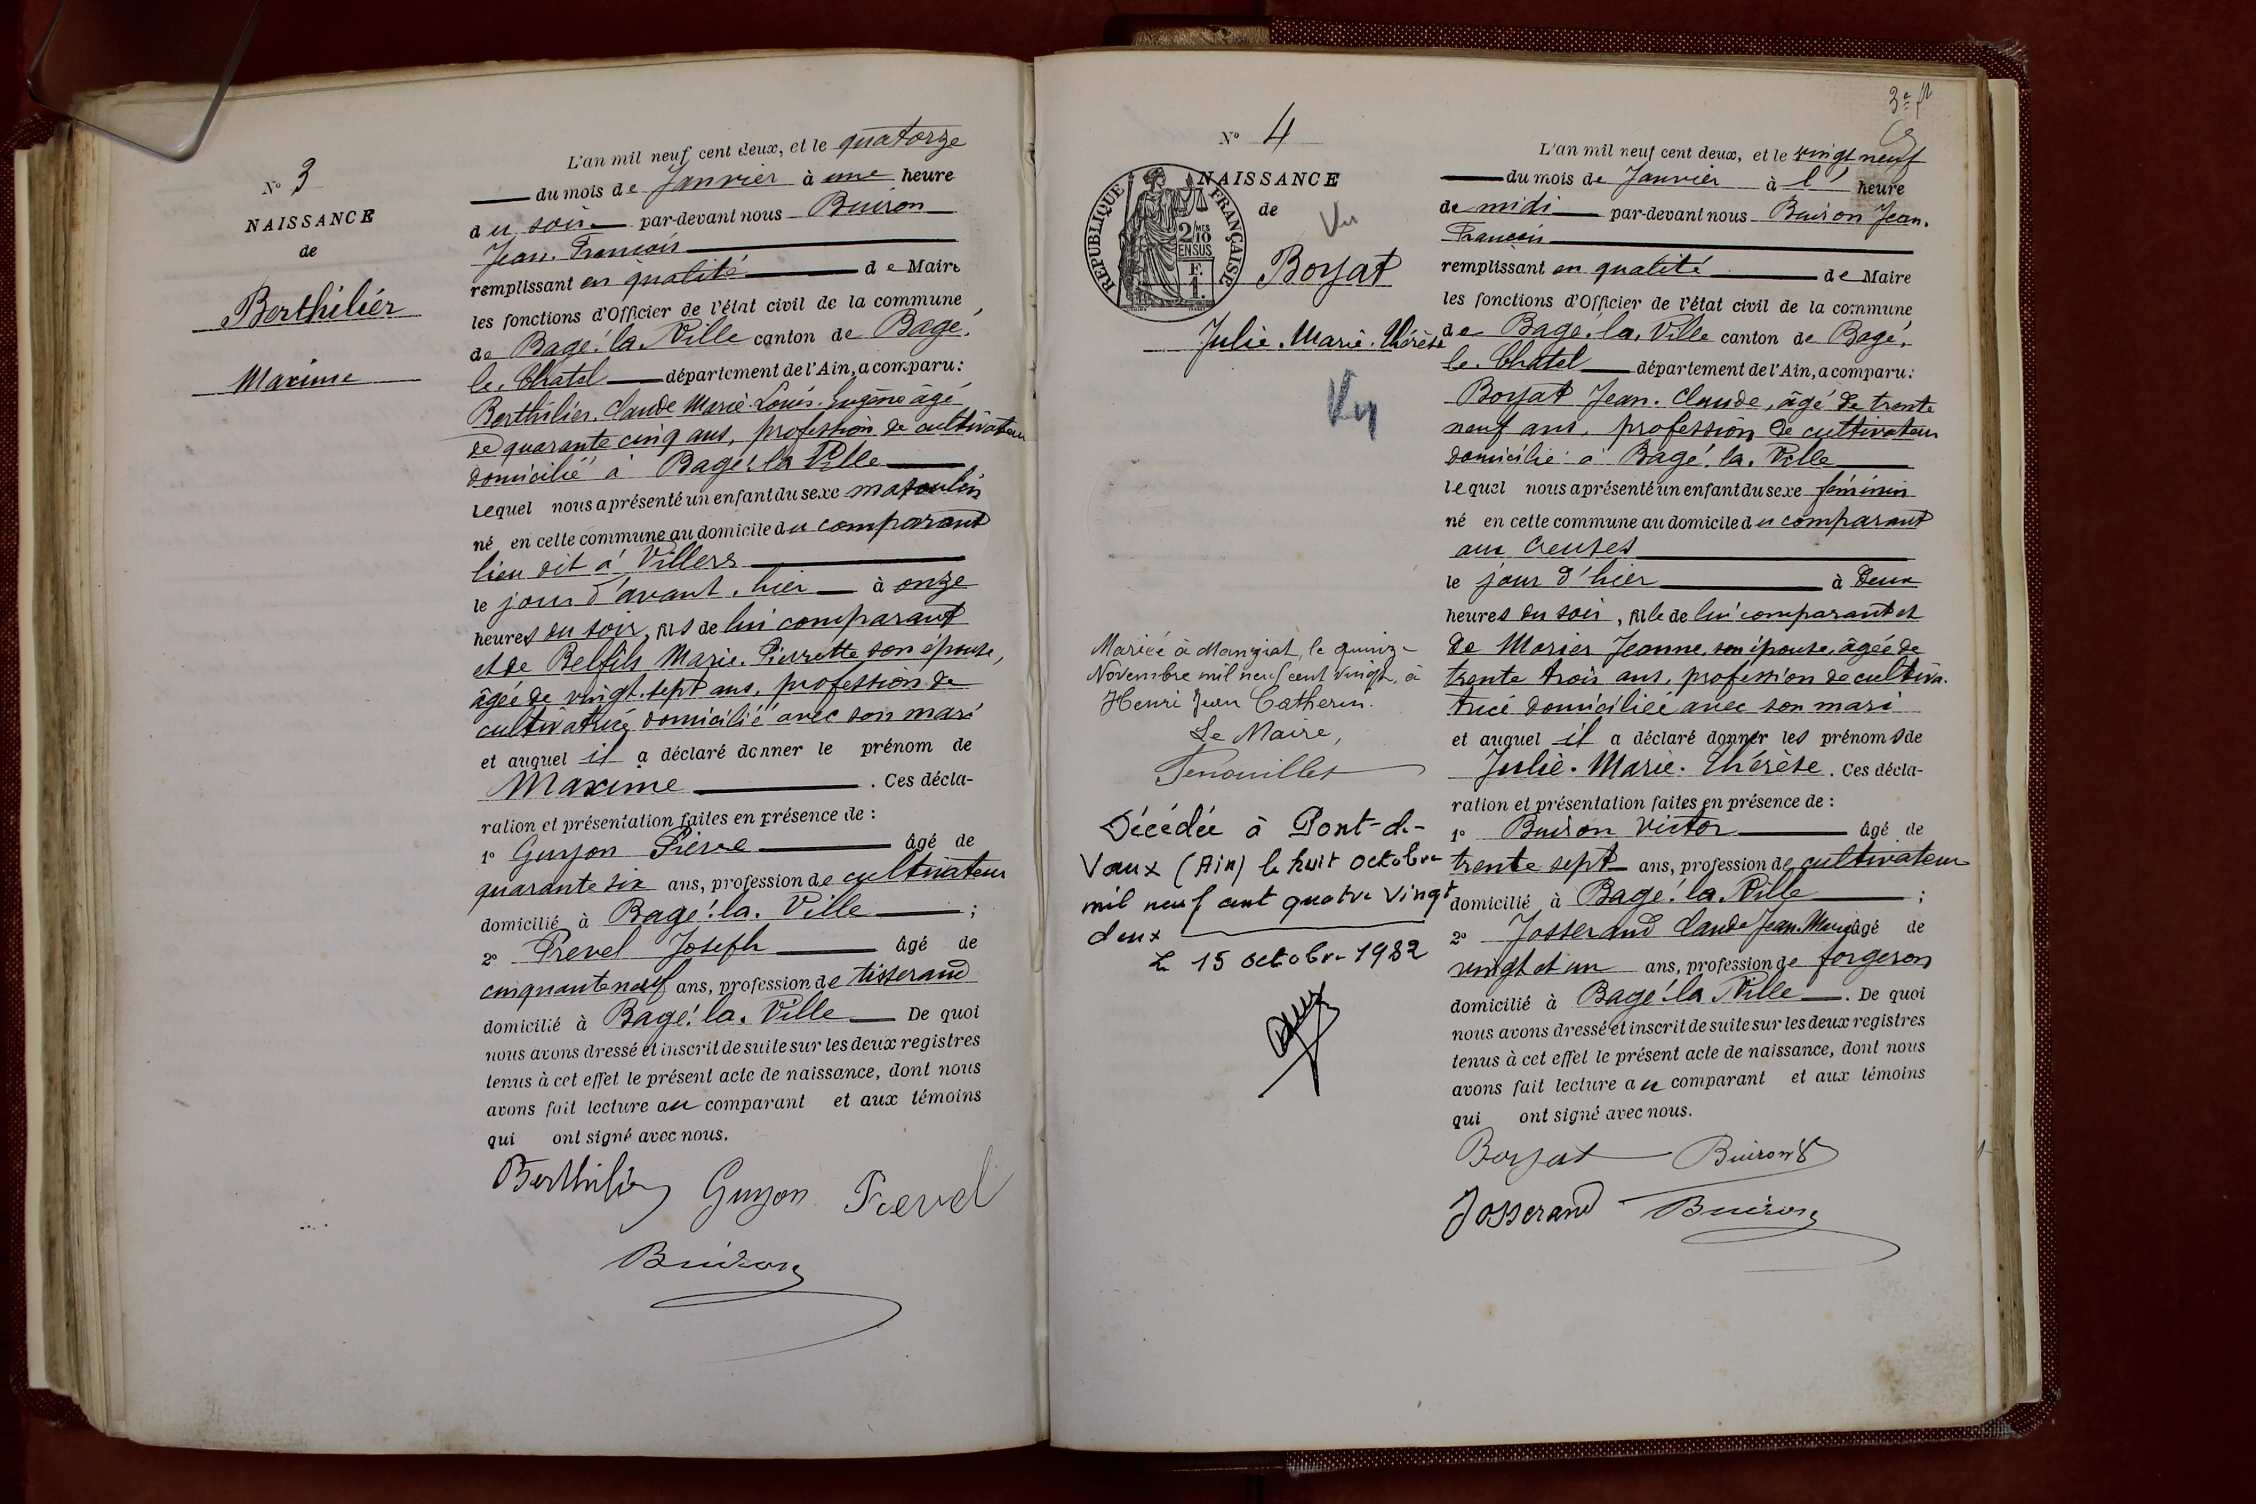 N° 3
NAISSANCE
de
Berthilier
Maxime
L'an mil neuf cent deux, et le quatorze
du mois de Janvier à une heure
du soir par-devant nous Buiron
Jean. François
remplissant en qualité de Maire
les fonctions d'Officier de l'état civil de la commune
de Bagé. la. Ville canton de Bagé.
le. Chatel département de l'Ain, a comparu :
Berthilier. Claude Marie. Louis. Eugène âgé
de quarante cinq ans, profession de cultivateur
domicilié à Bagé. la Ville
lequel nous a présenté un enfant du sexe masculin
né en cette commune au domicile du comparant
lieu dit à Villers
le jour d'avant. hier à onze
heures du soir, fils de lui comparant
et de Belfils Marie. Pierrette son épouse,
âgée de vingt. sept ans, profession de
cultivatrice domicilié avec son mari
et auquel il a déclaré donner le prénom de
Maxime . Ces décla-
ration et présentation faites en présence de :
1° Guyon Pierre âgé de
quarante six ans, profession de cultivateur
domicilié à Bagé. la. Ville ;
2° Prevel Joseph âgé de
cinquante neuf ans, profession de tisserand
domicilié à Bagé. la. Ville De quoi
nous avons dressé et inscrit de suite sur les deux registres
tenus à cet effet le présent acte de naissance, dont nous
avons fait lecture au comparant et aux témoins
qui ont signé avec nous.
Berthilier Guyon Prevel
Buiron
3e f
N° 4
NAISSANCE
de
Vu
RÉPUBLIQUE FRANÇAISE
2/10 MES
EN SUS
F.
1.
Boyat
Julie. Marie. Thérèse
Vu
Mariée à Manziat, le quinze
Novembre mil neuf cent vingt, à
Henri Jean Catherin.
Le Maire,
Fenouillet
Décédée à Pont-de-
Vaux (Ain) le huit octobre
mil neuf cent quatre vingt
deux
Le 15 octobre 1982
L'an mil neuf cent deux, et le vingt neuf
du mois de Janvier à l' heure
de midi par-devant nous Buiron Jean.
François
remplissant en qualité de Maire
les fonctions d'Officier de l'état civil de la commune
de Bagé. la. Ville canton de Bagé.
le. Chatel département de l'Ain, a comparu :
Boyat Jean. Claude, âgé de trente
neuf ans, profession de cultivateur
domicilié à Bagé. la. Ville
lequel nous a présenté un enfant du sexe féminin
né en cette commune au domicile du comparant
aux Creuses
le jour d'hier à deux
heures du soir, fille de lui comparant et
de Morier Jeanne, son épouse, âgée de
trente trois ans, profession de cultiva-
trice domiciliée avec son mari
et auquel il a déclaré donner les prénoms de
Julie. Marie. Thérèse . Ces décla-
ration et présentation faites en présence de :
1° Buiron Victor âgé de
trente sept ans, profession de cultivateur
domicilié à Bagé. la. Ville ;
2° Josserand Claude Jean. Marie âgé de
vingt et un ans, profession de forgeron
domicilié à Bagé. la Ville . De quoi
nous avons dressé et inscrit de suite sur les deux registres
tenus à cet effet le présent acte de naissance, dont nous
avons fait lecture au comparant et aux témoins
qui ont signé avec nous.
Boyat Buiron V
Josserand Buiron